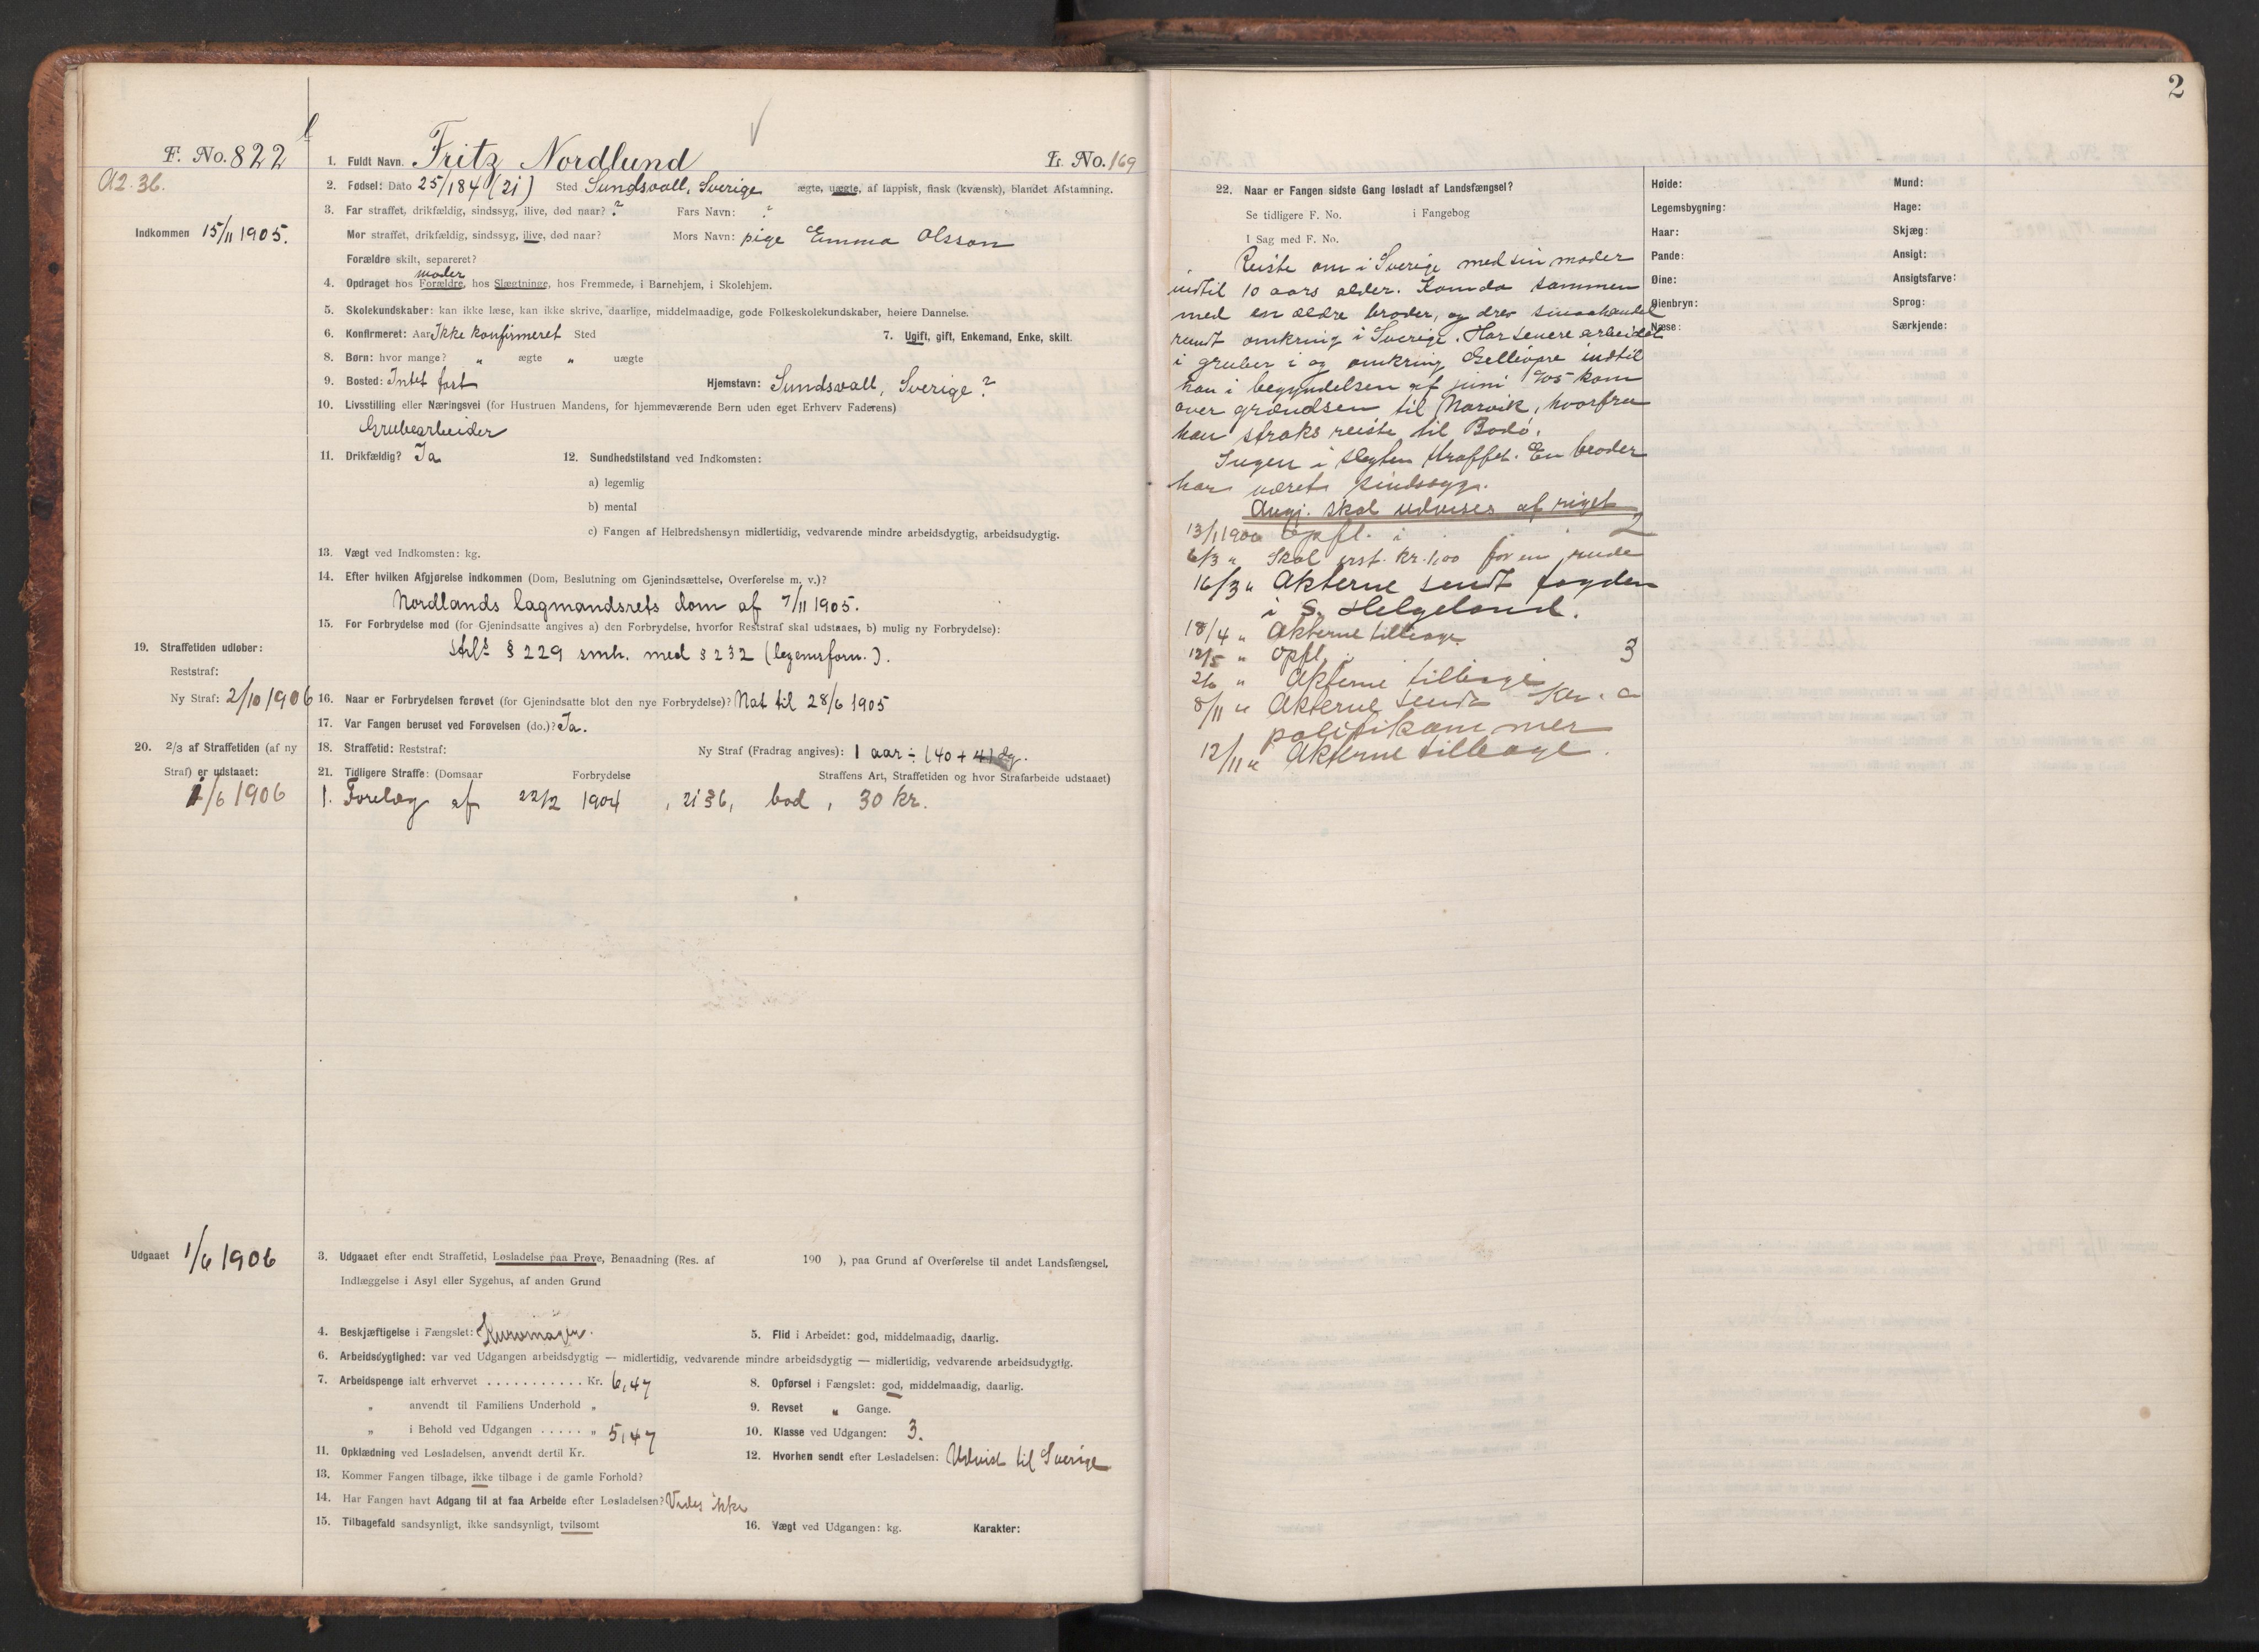 F. No. 822
A2. 36.
Indkommen 15/11 1905.
1. Fuldt Navn. Fritz Nordlund L. No. 169
2. Fødsel: Dato 25/1 84 (21) Sted Sundsvall, Sverige ægte, uægte, af lappisk, finsk (kvænsk), blandet Afstamning.
3. Far straffet, drikfældig, sindssyg, ilive, død naar? ? Fars Navn: ?
Mor straffet, drikfældig, sindssyg, ilive, død naar? Mors Navn: pige Emma Olsson
Forældre skilt, separeret?
moder
4. Opdraget hos Forældre, hos Slægtninge, hos Fremmede, i Barnehjem, i Skolehjem.
5. Skolekundskaber: kan ikke læse, kan ikke skrive, daarlige, middelmaadige, gode Folkeskolekundskaber, høiere Dannelse.
6. Konfirmeret: Aar Ikke konfirmeret Sted 7. Ugift, gift, Enkemand, Enke, skilt.
8. Børn: hvor mange? " ægte " uægte
9. Bosted: Intet fast Hjemstavn: Sundsvall, Sverige?
10. Livsstilling eller Næringsvei (for Hustruen Mandens, for hjemmeværende Børn uden eget Erhverv Faderens)
Grubearbeider
11. Drikfældig? Ja 12. Sundhedstilstand ved Indkomsten:
a) legemlig
b) mental
c) Fangen af Helbredshensyn midlertidig, vedvarende mindre arbeidsdygtig, arbeidsudygtig.
13. Vægt ved Indkomsten: kg.
14. Efter hvilken Afgjørelse indkommen (Dom, Beslutning om Gjenindsættelse, Overførelse m. v.)?
Nordlands lagmandsrets dom af 7/11 1905.
15. For Forbrydelse mod (for Gjenindsatte angives a) den Forbrydelse, hvorfor Reststraf skal udstaaes, b) mulig ny Forbrydelse):
Strl's § 229 smh. med § 232 (legemsforn.).
19. Straffetiden udløber:
Reststraf:
Ny Straf: 2/10 1906
16. Naar er Forbrydelsen forøvet (for Gjenindsatte blot den nye Forbrydelse)? Nat til 28/6 1905
17. Var Fangen beruset ved Forøvelsen (do.)? Ja.
20. 2/3 af Straffetiden (af ny
Straf) er udstaaet:
1/6 1906
18. Straffetid: Reststraf: Ny Straf (Fradrag angives): 1 aar ÷ (40 + 4) dg.
21. Tidligere Straffe: (Domsaar Forbrydelse Straffens Art, Straffetiden og hvor Strafarbeide udstaaet)
1. Forelæg af 22/2 1904, bod, 30 kr.
Udgaaet 1/6 1906
3. Udgaaet efter endt Straffetid, Løsladelse paa Prøve, Benaadning (Res. af 190 ), paa Grund af Overførelse til andet Landsfængsel,
Indlæggelse i Asyl eller Sygehus, af anden Grund
4. Beskjæftigelse i Fængslet: Kurvmager. 5. Flid i Arbeidet: god, middelmaadig, daarlig.
6. Arbeidsdygtighed: var ved Udgangen arbeidsdygtig — midlertidig, vedvarende mindre arbeidsdygtig — midlertidig, vedvarende arbeidsudygtig.
7. Arbeidspenge ialt erhvervet ........... Kr. 6,47 8. Opførsel i Fængslet: god, middelmaadig, daarlig.
" anvendt til Familiens Underhold " 9. Revset " Gange.
" i Behold ved Udgangen ..... " 5,47 10. Klasse ved Udgangen: 3.
11. Opklædning ved Løsladelsen, anvendt dertil Kr. 12. Hvorhen sendt efter Løsladelsen: Udvist til Sverige
13. Kommer Fangen tilbage, ikke tilbage i de gamle Forhold?
14. Har Fangen havt Adgang til at faa Arbeide efter Løsladelsen? Vides ikke
15. Tilbagefald sandsynligt, ikke sandsynligt, tvilsomt 16. Vægt ved Udgangen: kg. Karakter:
2
22. Naar er Fangen sidste Gang løsladt af Landsfængsel?
Se tidligere F. No. i Fangebog
I Sag med F. No.
Reiste om i Sverige med sin moder
indtil 10 aars alder. Kom da sammen
med en ældre broder, og drev smaahandel
rundt omkring i Sverige. Har senere arbeidet
i gruber i og omkring Gellivare indtil
han i begyndelsen af juni 905 kom
over grændsen til Narvik, hvorfra
han straks reiste til Bodø.
Ingen i slegten straffet. En broder
har været sindssyg.
Angj. skal udvises af riget
13/1 1906 Opfl. i 2
6/3 " Skal erst. kr. 1,00 for en rude
16/3 " Akterne sendt fogden
i S. Helgeland.
18/4 " Akterne tilbage
12/5 " Opfl. 3
2/6 " Akterne tilbage
8/11 " Akterne sendt Kr. a
politikammer
12/11 " Akterne tilbage.
Høide: Mund:
Legemsbygning: Hage:
Haar: Skjæg:
Pande: Ansigt:
Øine: Ansigtsfarve:
Øienbryn: Sprog:
Næse: Særkjende: